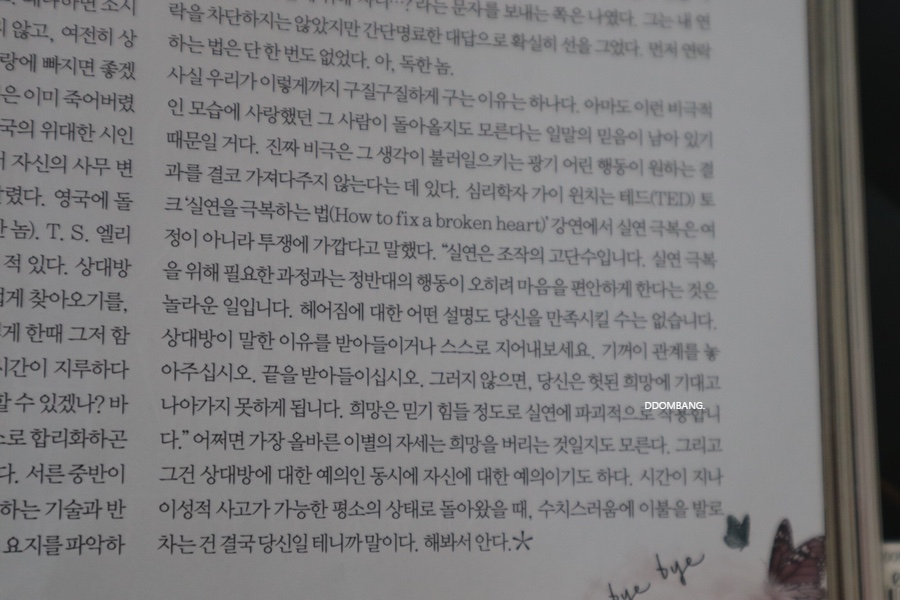 않고, 여전히 상
랑에 빠지면 좋겠
은 이미 죽어버렸
국의 위대한 시인
자신의 사무 변
영국에 돌
T. S. 엘리
적 있다. 상대방
찾아오기를,
한때 그저 함
시간이 지루하다
할 수 있겠나? 바
로 합리화하곤
다. 서른 중반이
하는 기술과 반
요지를 파악하
라는 문자를 보내는 쪽은 나였다. 그는 내 연
락을 차단하지는 않았지만 간단명료한 대답으로 확실히 선을 그었다. 먼저 연락
하는 법은 단 한 번도 없었다. 아, 독한 놈.
사실 우리가 이렇게까지 구질구질하게 구는 이유는 하나다. 아마도 이런 비극적
인 모습에 사랑했던 그 사람이 돌아올지도 모른다는 일말의 믿음이 남아 있기
때문일 거다. 진짜 비극은 그 생각이 불러일으키는 광기 어린 행동이 원하는 결
과를 결코 가져다주지 않는다는 데 있다. 심리학자 가이 윈치는 테드(TED) 토
크 '실연을 극복하는 법(How to fix a broken heart)' 강연에서 실연 극복은 여
정이 아니라 투쟁에 가깝다고 말했다. “실연은 조작의 고단수입니다. 실연 극복
을 위해 필요한 과정과는 정반대의 행동이 오히려 마음을 편안하게 한다는 것은
놀라운 일입니다. 헤어짐에 대한 어떤 설명도 당신을 만족시킬 수는 없습니다.
상대방이 말한 이유를 받아들이거나 스스로 지어내보세요. 기꺼이 관계를 놓
아주십시오. 끝을 받아들이십시오. 그러지 않으면, 당신은 헛된 희망에 기대고
나아가지 못하게 됩니다. 희망은 믿기 힘들 정도로 실연에 파괴적으로 작용합니
다.” 어쩌면 가장 올바른 이별의 자세는 희망을 버리는 것일지도 모른다. 그리고
그건 상대방에 대한 예의인 동시에 자신에 대한 예의이기도 하다. 시간이 지나
이성적 사고가 가능한 평소의 상태로 돌아왔을 때, 수치스러움에 이불을 발로
차는 건 결국 당신일 테니까 말이다. 해봐서 안다.
DDOMBANG.
bye bye